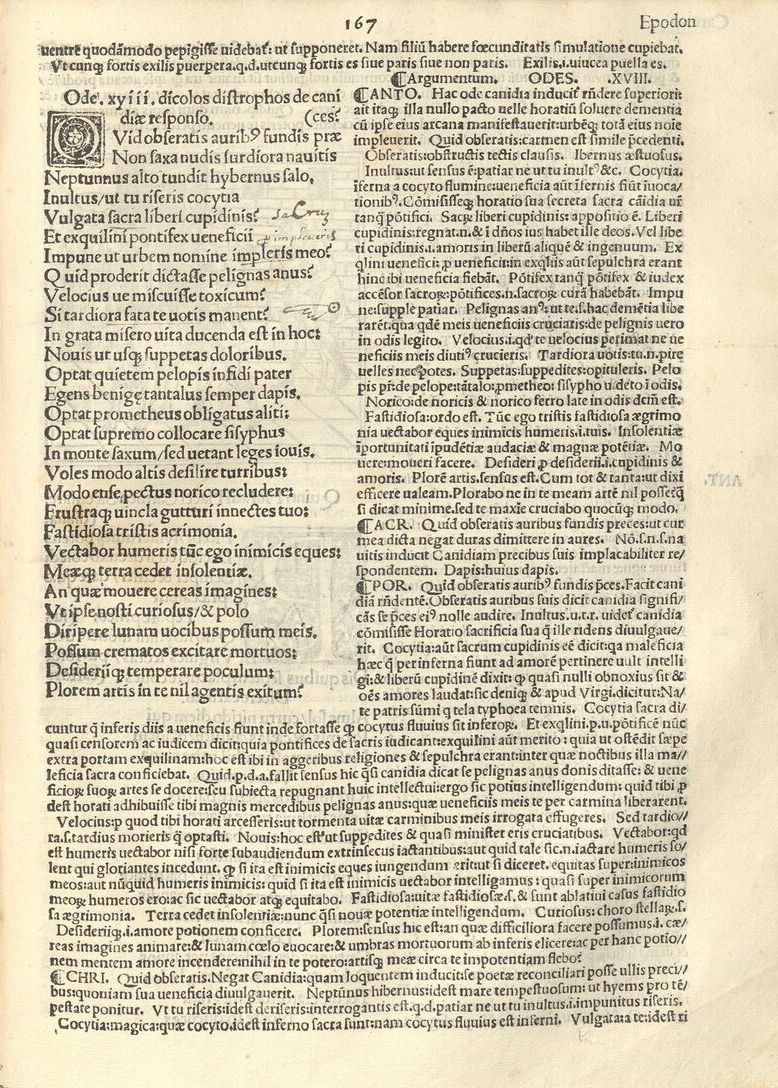 167
Epodon
uentre quodãmodo pepigisse uidebat: ut supponeret. Nam filiũ habere fœcunditatis simulatione cupiebat.
Vt cunq; fortis exilis puerpera.q.d.utcunq; fortis es siue paris siue non paris. Exilis.i.uiucea puella es.
Ode. xyiii. dicolos distrophos de cani
diæ responso. (ces?
QVid obseratis aurib⁹ fundis præ
Non saxa nudis surdiora nauitis
Neptunnus alto tundit hybernus salo.
Inultus/ut tu riseris cocytia
Vulgata sacra liberi cupidinis? sacru
Et exquilini pontifex ueneficii impleueris
Impune ut urbem nomine impleris meo?
Quid proderit dictasse pelignas anus?
Velocius ue miscuisse toxicum?
Si tardiora fata te uotis manent?
In grata misero uita ducenda est in hoc:
Nouis ut usq; suppetas doloribus.
Optat quietem pelopis infidi pater
Egens benigę tantalus semper dapis.
Optat prometheus obligatus aliti:
Optat supremo collocare sisyphus
In monte saxum/sed uetant leges iouis.
Voles modo altis desilire turribus:
Modo ense pectus norico recludere:
Frustraq; uincla gutturi innectes tuo:
Fastidiosa tristis acrimonia.
Vectabor humeris tũc ego inimicis eques:
Meæq; terra cedet insolentiæ.
An quæ mouere cereas imagines:
Vt ipse nosti curiosus/& polo
Diripere lunam uocibus possum meis.
Possum crematos excitare mortuos:
Desideriiq; temperare poculum:
Plorem artis in te nil agentis exitum?
Argumentum. ODES. XVIII.
CANTO. Hac ode canidia inducit rñdere superiori:
ait itaq; illa nullo pacto uelle horatiũ soluere dementia
cũ ipse eius arcana manifestauerit:urbẽq; totã eius noie
impleuerit. Quid obseratis:carmen est simile p̃cedenti.
Obseratis:obstructis tectis clausis. Ibernus æstuosus.
Inultus:ut sensus ẽ:patiar ne ut tu inult⁹ &c. Cocytia.
ĩferna a cocyto flumine:ueneficia aũt ĩfernis fiũt ĩuoca/
tionib⁹. Cõmisisseq; horatio sua secreta sacra cãidia ut
tanq̃ põtifici. Sacrę liberi cupidinis:appositio ẽ. Liberi
cupidinis:regnat.n.& ĩ dños ius habet ille deos. Vel libe
ri cupidinis.i.amoris in liberũ aliquẽ & ingenuum. Ex
hinc ibi ueneficia fiebãt. Põtifex tanq̃ põtifex & iudex
ne:supple patiar. Pelignas an⁹: ut te.s.hac demẽtia libe
raret.qua qdẽ meis ueneficiis cruciaris:de pelignis uero
in odis legito. Velocius.i.qd⁹ te uelocius perimat ne ue
neficiis meis diuti⁹ crucieris. Tardiora uotis:tu.n.pire
uelles nec potes. Suppetas:suppedites:opituleris. Pelo
Norico:de noricis & norico ferro late in odis dcĩm est.
Fastidiosa:ordo est. Tũc ego tristis fastidiosa ægrimo
nia uectabor eques inimicis humeris.i.tuis. Insolentiæ
ĩportunitati ĩpudẽtiæ audaciæ & magnæ potẽtiæ. Mo
uere:moueri facere. Desiderii p desiderii.i.cupidinis &
amoris. Plorẽ artis.sensus est.Cum tot & tanta:ut dixi
efficere ualeam.Plorabo ne in te meam artẽ nil posse:q̃
si dicat minime.sed te maxie cruciabo quocũq; modo.
ACR. Quid obseratis auribus fundis preces:ut cur
mea dicta negat duras dimittere in aures. Nõ.s.n.s.na
uitis inducit Canidiam precibus suis implacabiliter re/
spondentem. Dapis:huius dapis.
POR. Quid obseratis aurib⁹ fundis p̃ces.Facit cani
diã rñdentẽ.Obseratis auribus suis dicit canidia signifi/
cãs se p̃ces ei⁹ nolle audire. Inultus.u.t.r. uidet̃ canidia
cõmisisse Horatio sacrificia sua q̃ ille ridens diuulgaue/
rit. Cocytia:aũt sacrum cupidinis eẽ dicit:qa maleficia
hæc q̃ per inferna fiunt ad amorẽ pertinere uult intelli
gi:& liberũ cupidinẽ dixit: qp quasi nulli obnoxius sit &
oẽs amores laudat:sic deniq; & apud Virgi.dicitur:Na/
te patris sũmi q tela typhoea temnis. Cocytia sacra di/
cuntur q̃ inferis diis a ueneficis fiunt inde fortasse qp cocytus fluuius sit inferoꝝ. Et exqlini.p.u.põtificẽ nũc
quasi censorem ac iudicem dicit:quia pontifices de sacris iudicant:exquilini aũt merito: quia ut ostẽdit sæpe
extra portam exquilinam:hoc est ibi in aggeribus religiones & sepulchra erant:inter quæ noctibus illa ma//
leficia sacra conficiebat. Quid.p.d.a.fallit sensus hic q̃si canidia dicat se pelignas anus donis ditasse: & uene
ficioꝝ suoꝝ artes se docere:seu subiecta repugnant huic intellectui:ergo sic potius intelligendum: quid tibi p
dest horati adhibuisse tibi magnis mercedibus pelignas anus:quæ ueneficiis meis te per carmina liberarent.
Velocius:p quod tibi horati arcesseris:ut tormenta uitæ carminibus meis irrogata effugeres. Sed tardio//
ra.s.tardius morieris q̃ optasti. Nouis:hoc est ut suppedites & quasi minister eris cruciatibus. Vectabor:qd
est humeris uectabor nisi forte subaudiendum extrinsecus iactantibus:aut quid tale sic.n.iactare humeris so/
lent qui gloriantes incedunt. qp si ita est inimicis eques iungendum erit:ut si diceret. equitas super:inimicos
meos:aut nũquid humeris inimicis: quid si ita est inimicis uectabor intelligamus: quasi super inimicorum
meoꝝ humeros ero:ac sic uectabor atq; equitabo. Fastidiosa:uitæ fastidiosæ.s.& sunt ablatiui casus fastidio
sa ægrimonia. Terra cedet insolentiæ:nunc q̃si nouæ potentiæ intelligendum. Curiosus: choro stellaꝝ.s.
Desideriiq;.i.amore potionem conficere. Plorem:sensus hic est:an quæ difficiliora facere possumus.i. cæ/
reas imagines animare:& lunam cœlo euocare:& umbras mortuorum ab inferis elicere:ac per hanc potio//
nem mentem amore incendere:nihil in te potero:artisq; meæ circa te impotentiam flebo?
CHRI. Quid obseratis.Negat Canidia:quam loquentem inducit:se poetæ reconciliari posse ullis preci//
bus:quoniam sua ueneficia diuulgauerit. Neptũnus hibernus:idest mare tempestuosum: ut hyems pro tẽ/
pestate ponitur. Vt tu riseris:idest deriseris:interrogantis est.q.d.patiar ne ut tu inultus.i.impunitus riseris.
Cocytia:magica:quæ cocyto.idest inferno sacra sunt:nam cocytus fluuius est inferni. Vulgata:a te:idest ri